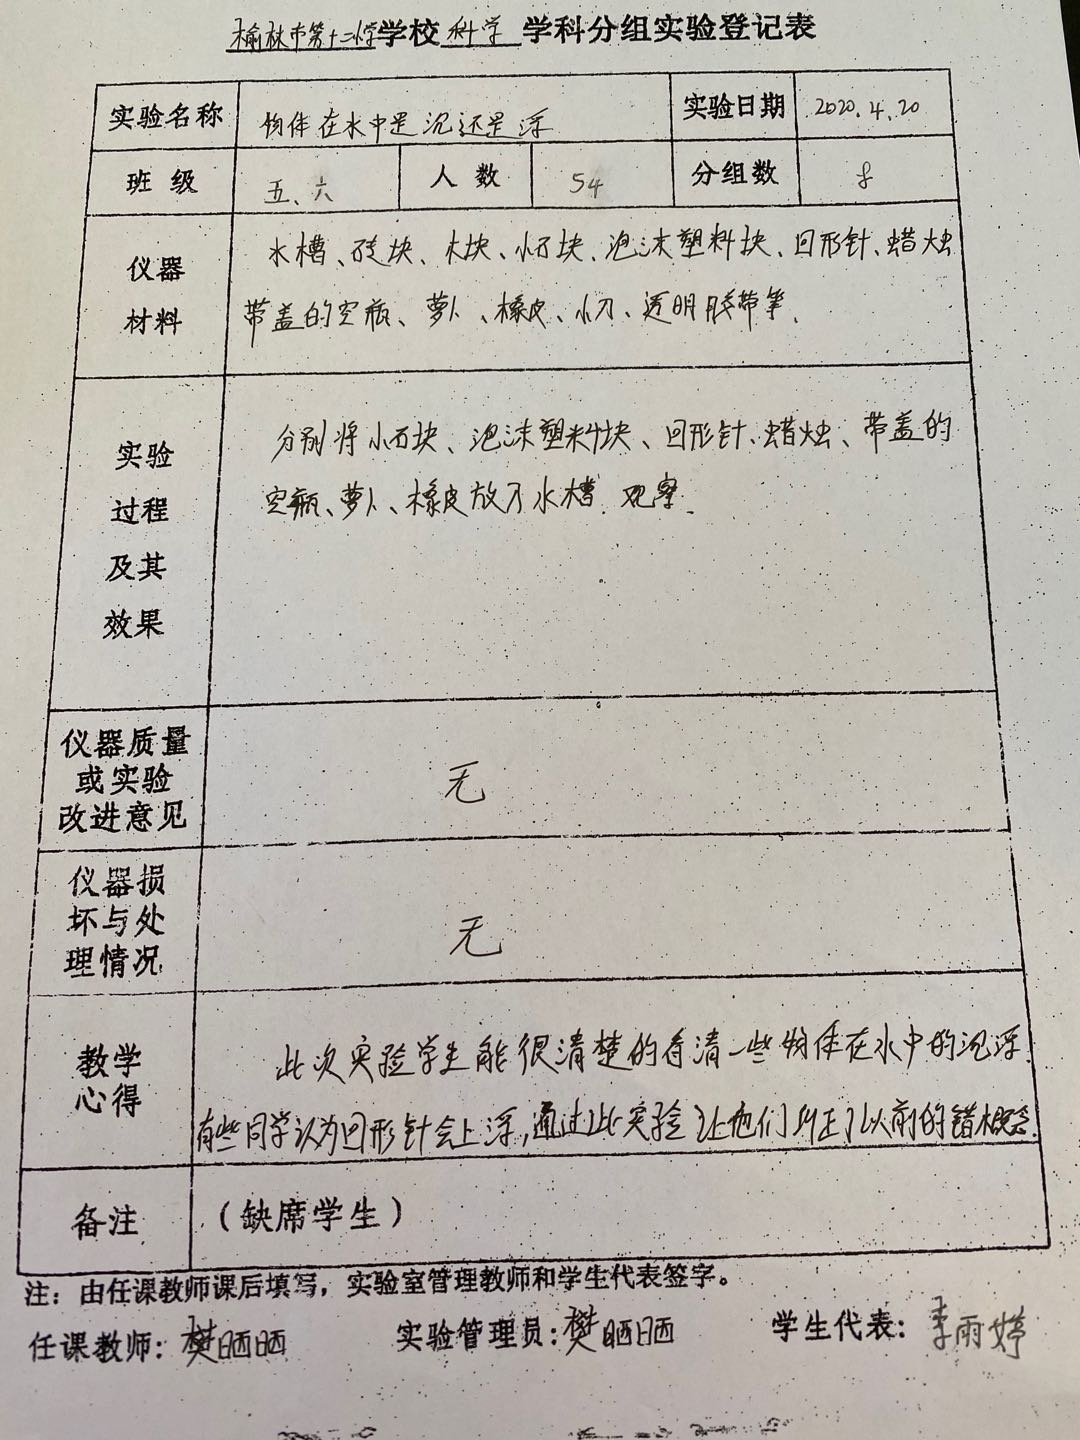 榆林市第十二小学学校科学学科分组实验登记表
实验名称 物体在水中是沉还是浮 实验日期 2020.4.20
班级 五、六 人数 54 分组数 8
仪器材料
水槽、砖块、木块、小石块、泡沫塑料块、回形针、蜡烛
带盖的空瓶、萝卜、橡皮、小刀、透明胶带等.
实验过程及其效果
分别将小石块、泡沫塑料块、回形针、蜡烛、带盖的
空瓶、萝卜、橡皮放入水槽.观察.
仪器质量
或实验
改进意见
无
仪器损
坏与处
理情况
无
教学
心得
此次实验学生能很清楚的看清一些物体在水中的沉浮.
有些同学认为回形针会上浮,通过此实验让他们纠正了以前的错概念.
备注 (缺席学生)
注：由任课教师课后填写，实验室管理教师和学生代表签字。
任课教师：樊晒晒 实验管理员：樊晒晒 学生代表：李雨婷